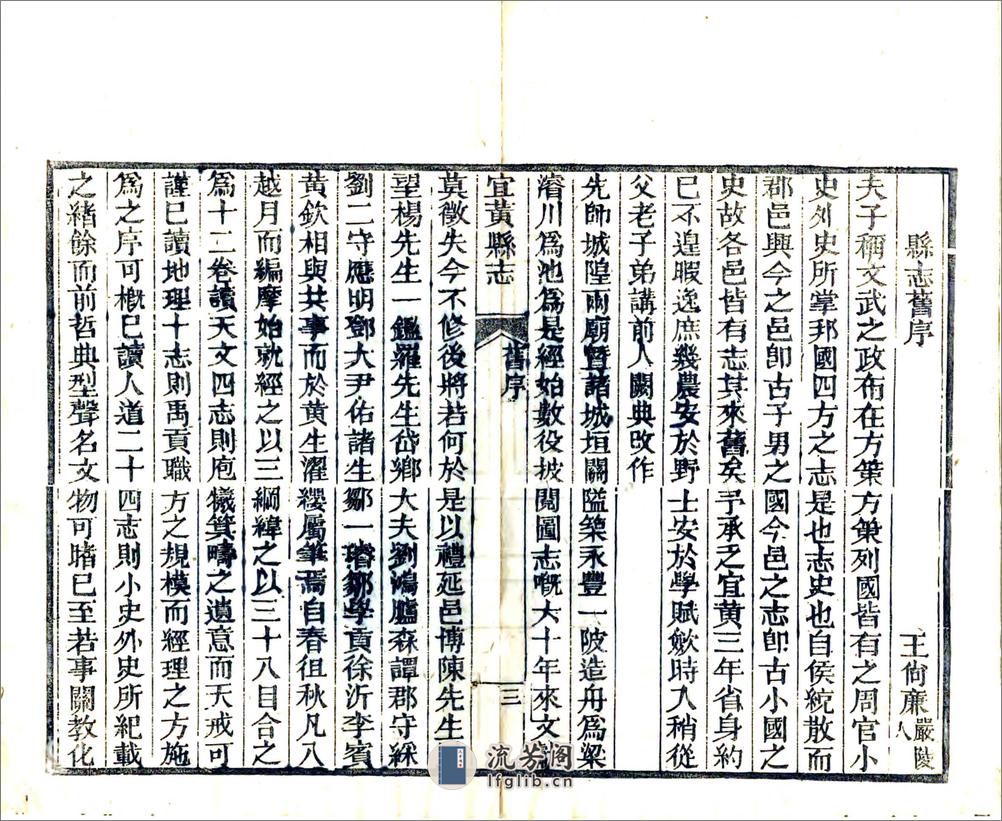 縣志舊序
王尙廉嚴陵人
夫子稱文武之政布在方策方策列國皆有之周官小
史外史所掌邦國四方之志是也志史也自侯統散而
郡邑興今之邑卽古子男之國今邑之志卽古小國之
史故各邑皆有志其來舊矣予承乏宜黃三年省身約
已不遑暇逸庶幾農安於野士安於學賦歛時入稍從
父老子弟講前人闕典改作
先師城隍兩廟暨諸城垣關隘築永豐一陂造舟爲梁
濬川爲池爲是經始數役披閱圖志嘅大十年來文
宜黃縣志
舊序
三
莫徵失今不修後將若何於是以禮延邑博陳先生
望楊先生一鑑羅先生岱鄉大夫劉鴻臚森譚郡守綵
劉二守應明鄧大尹佑諸生鄒一璿鄒學貢徐沂李賓
黃欽相與共事而於黃生濯纓屬筆焉自春徂秋凡八
越月而編摩始就經之以三綱緯之以三十八目合之
爲十二卷讀天文四志則庖犧箕疇之遺意而天戒可
謹已讀地理十志則禹貢職方之規模而經理之方施
爲之序可槪已讀人道二十四志則小史外史所紀載
之緖餘而前哲典型聲名文物可睹已至若事關教化
流芳阁
lfglib.cn